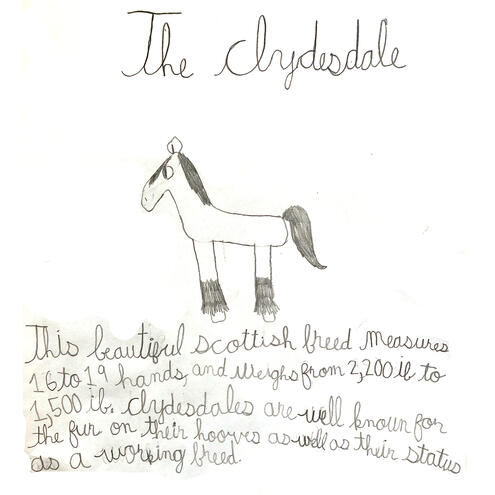 The Clydesdale
This beautiful scottish breed measures
16 to 19 hands, and weighs from 2,200 ib to
1,500 ib. Clydesdales are well known for
the fur on their hooves as well as their status
as a working breed.